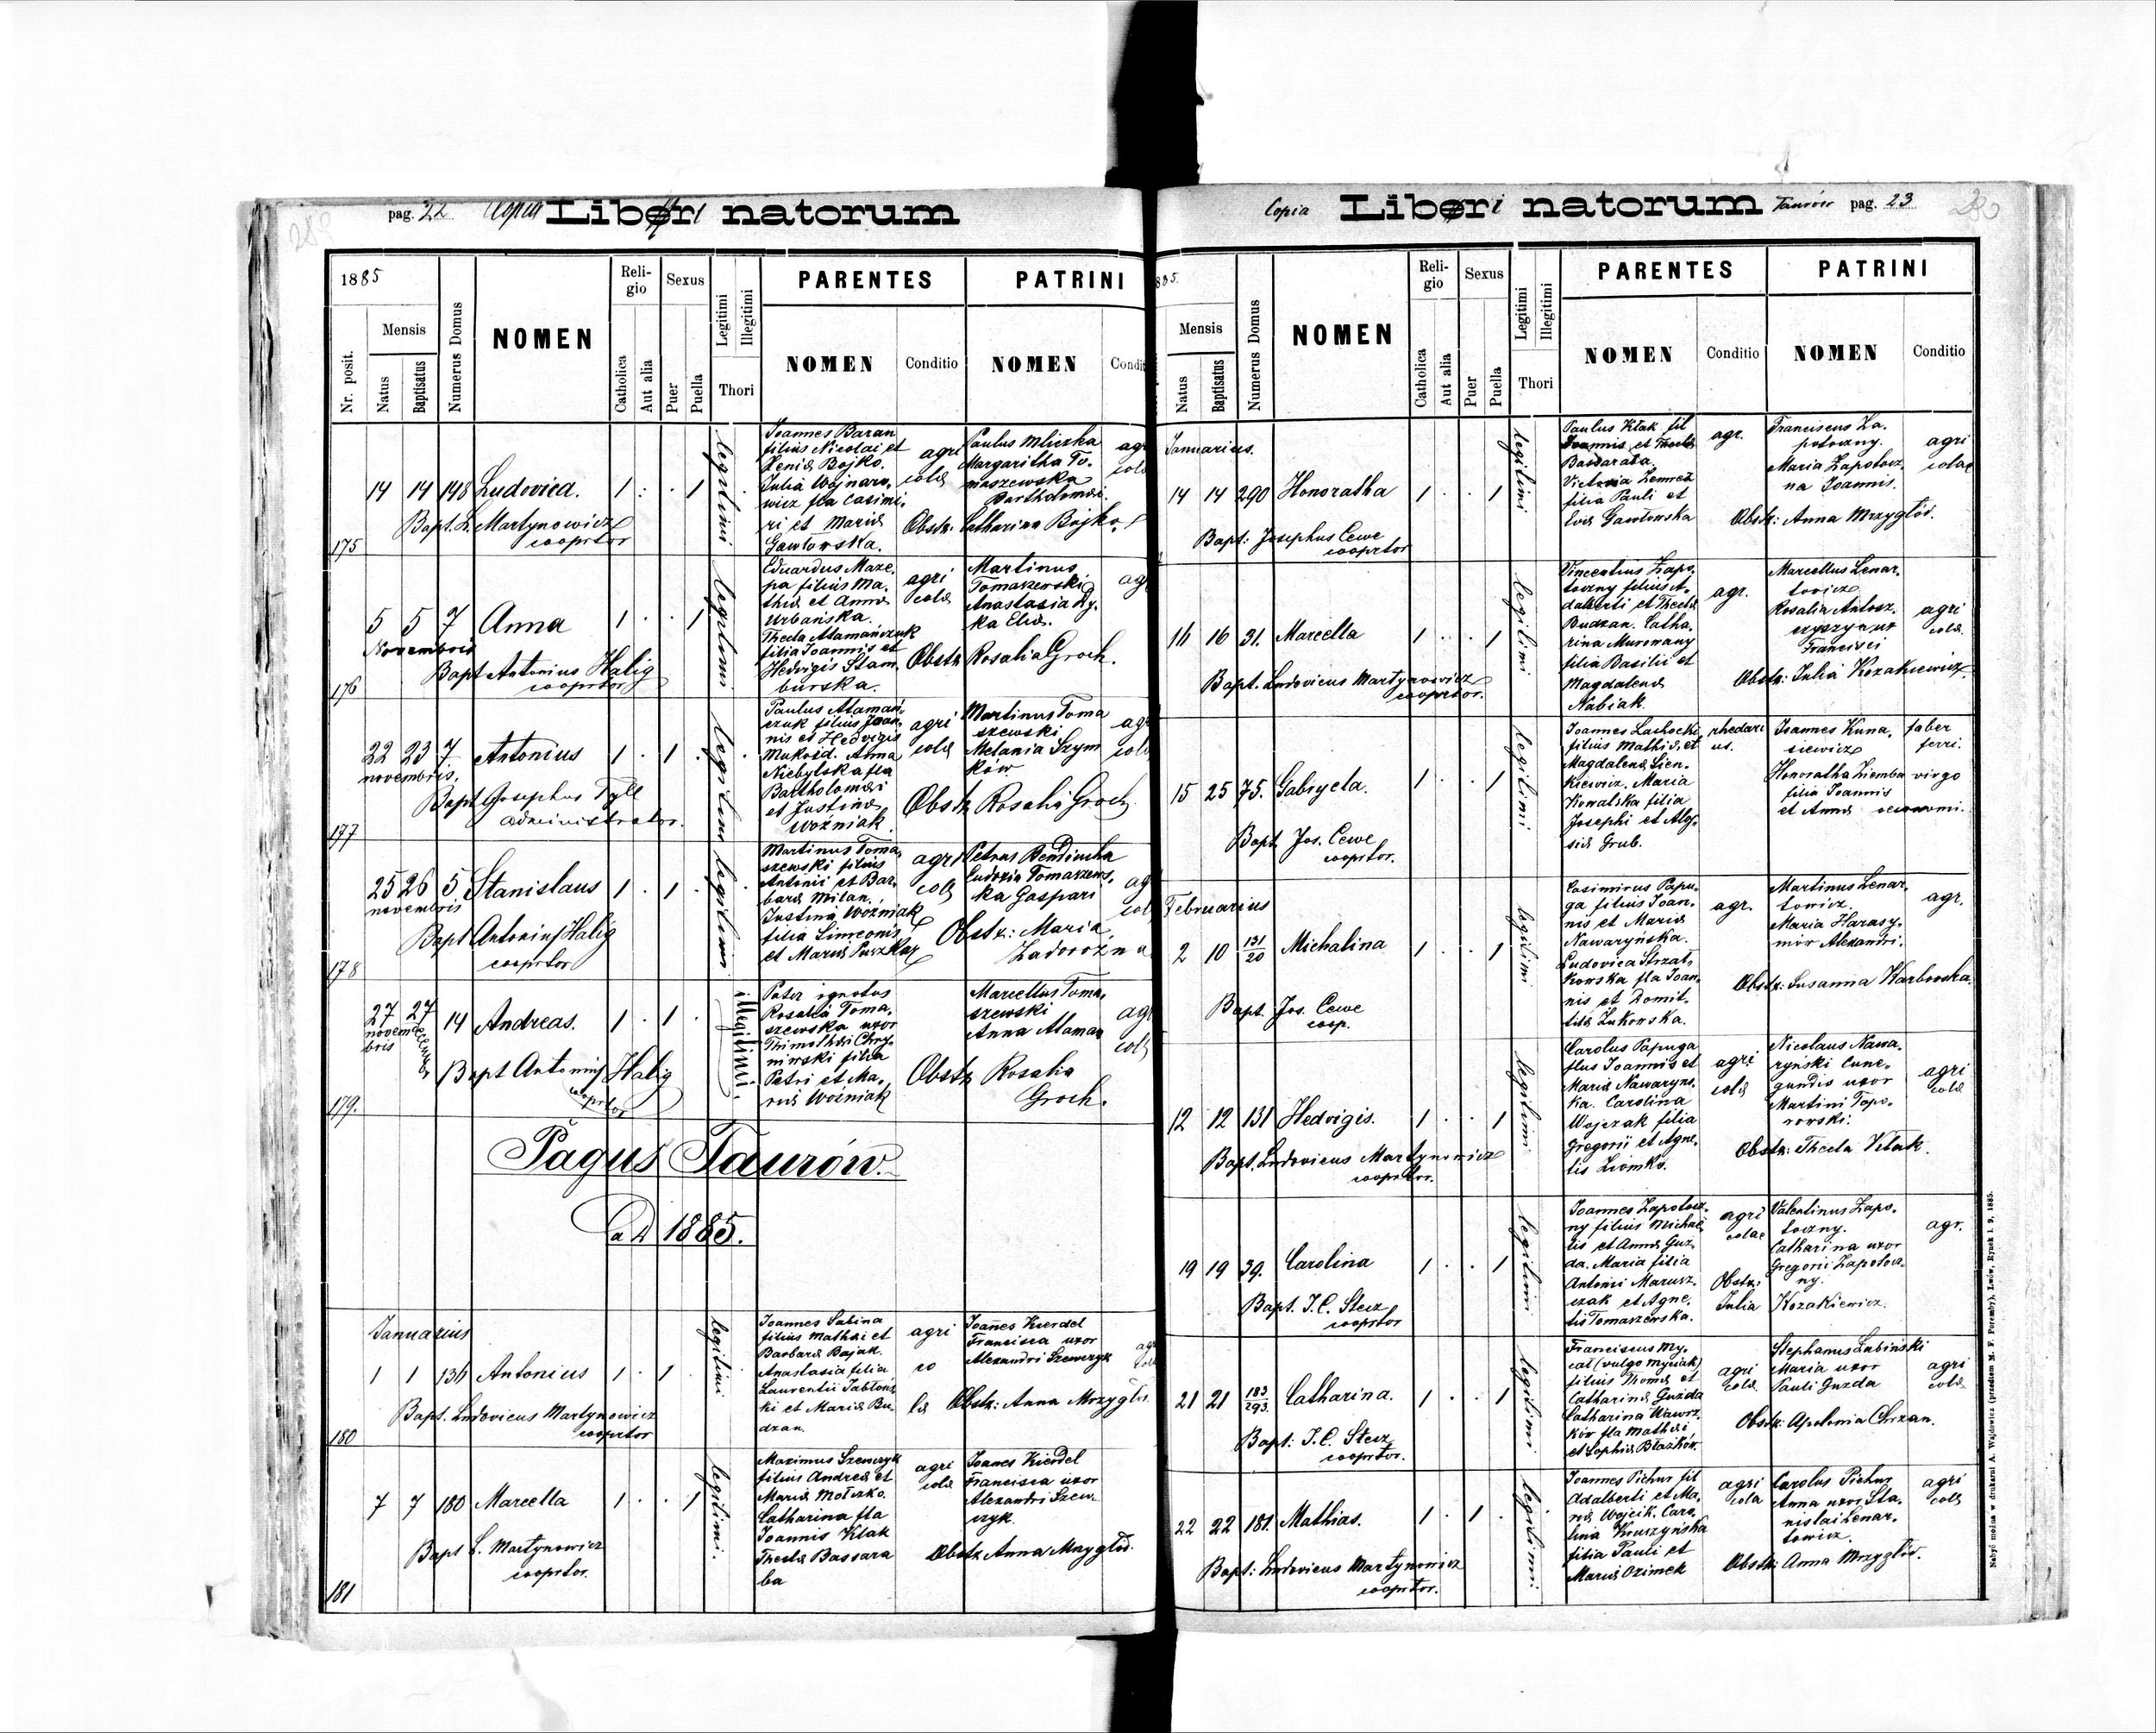 pag. 22 Copia Libri natorum
1885
Nr. posit.
Mensis
Natus
Baptisatus
Numerus Domus
NOMEN
Reli-
gio
Catholica
Aut alia
Sexus
Puer
Puella
Legitimi
Illegitimi
Thori
PARENTES
NOMEN
Conditio
PATRINI
NOMEN
Condit
175
14 14 148 Ludovica. 1 . . 1
Bapt. L. Martynowicz
cooprtor
legitimi
Joannes Baran
filius Nicolai et
Xeniæ Bojko.
Julia Wojnaro-
wicz fla Casimi-
ri et Mariæ
Gawłowska.
agri
colæ
Paulus Mliczka
Margaritha To-
maszewska
Bartholomæi.
agri
colæ
Obstr: Catharina Bojko.
176
5 5 7 Anna 1 . . 1
Novembris
Bapt Antonius Halig
cooprtor
legitimi
Eduardus Maze-
pa filius Ma-
thiæ et Annæ
Urbańska.
Thecla Atamańczuk
filia Joannis et
Hedvigis Stam-
burska.
agri
colæ
Martinus
Tomaszewski
Anastasia Dy-
ka Eliæ.
ag
Obstr Rosalia Groch.
177
22 23 7. Antonius 1 . 1 .
novembris.
Bapt Josephus Tyll
administrator.
legitimi
Paulus Ataman-
czuk filius Joan-
nis et Hedvigis
Anna
Niebylska fla
Bartholomæi
et Justinæ
Woźniak.
agri
colæ
Martinus Toma
szewski
Melania Szym
ków
agr
colæ
Obstr Rosalia Groch
178
25 26 5 Stanislaus 1 . 1 .
novembris
Bapt Antonius Halig
cooprtor
legitimi
Martinus Toma-
szewski filius
Antonii et Bar-
baræ Milan.
Justina Woźniak
filia Simeonis
et Mariæ Puszkar
agri
colæ
Petrus Bendiucha
Eudoxia Tomaszews-
ka Gaspari
ag
col
Obstr: Maria
Zadorożna
179.
27 27 14 Andreas. 1 . 1 .
novem-
bris
Bapt Antonius Halig
cooprtor
illegitimi.
Pater ignotus
Rosalia Toma-
szewska uxor
Thimothæi Chry-
niwski filia
Petri et Ma-
riæ Woźniak
Marcellus Toma-
szewski
Anna Ataman
ag
col
Obstr Rosalia
Groch.
Pagus Taurów.
ad 1885.
180
Januarius
1 1 136 Antonius 1 . 1 .
Bapt. Ludovicus Martynowicz
cooprtor
legitimi
Joannes Sabina
filius Mathæi et
Barbaræ Bajak.
Anastasia filia
Laurentii Jabłońs-
ki et Mariæ Bu-
dzan.
agri
co
læ
Joannes Kierdel
Francisca uxor
Alexandri Szewczyk
agri
colæ
Obstr: Anna Mrzygłód.
181
7 7 180 Marcella 1 . . 1
Bapt L. Martynowicz
cooprtor.
legitimi.
Maximus Szewczyk
filius Andreæ et
Mariæ Motczko.
Catharina fla
Joannis Kłak
Theclæ Bassara
ba
agri
colæ
Joannes Kierdel
Francisca uxor
Alexandri Szew-
czyk.
Obstr Anna Mrzygłód.
Copia Libri natorum Taurów pag. 23
885.
Mensis
Natus
Baptisatus
Numerus Domus
NOMEN
Reli-
gio
Catholica
Aut alia
Sexus
Puer
Puella
Legitimi
Illegitimi
Thori
PARENTES
NOMEN
Conditio
PATRINI
NOMEN
Conditio
Januarius.
14 14 290 Honoratha 1 . . 1
Bapt: Josephus Cewe
cooprtor
legitimi
Paulus Kłak fil
Joannis et Theclæ
Bassaraba.
Victoria Ziemrea
filia Pauli et
Evæ Gawłowska
agr.
Franciscus Za-
potoczny.
Maria Zapotocz-
na Joannis.
agri
colae
Obstr: Anna Mrzygłód.
16 16 31. Marcella 1 . . 1
Bapt. Ludovicus Martynowicz
cooprtor.
legitimi
Vincentius Zapo-
toczny filius A-
dalberti et Theclæ
Budzan. Catha-
rina Murowany
filia Basilii et
Magdalenæ
Nabiak.
agr.
Marcellus Lenar-
towicz
Rosalia Antosz-
czyszyn ux
Francisci
agri
colæ.
Obstr: Julia Kozakiewicz.
15 25 75. Gabryela. 1 . . 1
Bapt Jos. Cewe
cooprtor.
legitimi
Joannes Lachocki
filius Mathiæ et
Magdalenæ Sien-
kiewicz. Maria
Kowalska filia
Josephi et Aloy-
siæ Grub.
rhedari
us.
Joannes Kuna-
siewicz
Honoratha Ziemba
filia Joannis
et Annæ
faber
ferri.
virgo
oeconomi.
Februarius
2 10 131/20 Michalina 1 . . 1
Bapt. Jos. Cewe
coop.
legitimi
Casimirus Papu-
ga filius Joan-
nis et Mariæ
Nawaryńska.
Ludovica Strzał-
kowska fla Joan-
nis et Domit-
tilæ Żukowska.
agr.
Martinus Lenar-
towicz.
Maria Harasy-
mów Alexandri.
agr.
Obstr: Susanna Karbowska.
12 12 131 Hedvigis. 1 . . 1
Bapt. Ludovicus Martynowicz
cooprtor.
legitimi
Carolus Papuga
flus Joannis et
Mariæ Nawaryns-
ka. Carolina
Wojczak filia
Gregorii et Agne-
tis Ziomko.
agri
colæ
Nicolaus Nawa-
ryński Cune-
gundis uxor
Martini Topo-
rowski.
agri
colæ
Obstr: Thecla Witak.
19 19 39. Carolina 1 . . 1
Bapt. J. C. Stecz
cooprtor
legitimi
Joannes Zapotocz-
ny filius Michae-
lis et Annæ Guz-
da. Maria filia
Antonii Marusz-
czak et Agne-
tis Tomaszewska.
agri
colae
Valentinus Zapo-
toczny.
Catharina uxor
Gregorii Zapotocz-
ny.
agr.
Obstr:
Julia Kozakiewicz.
21 21 183/293 Catharina. 1 . . 1
Bapt: J. C. Stecz
cooprtor.
legitimi
Franciscus My-
cał (vulgo Myciak)
filius Thomæ et
Catharinæ Guzda
Catharina Wawrz-
ków fla Mathæi
et Sophiæ Błażków.
agri
colæ
Stephanus Łubiński
Maria uxor
Pauli Guzda
agri
colæ
Obstr: Apolonia Chrzan.
22 22 181. Mathias. 1 . 1 .
Bapt: Ludovicus Martynowicz
cooprtor.
legitimi.
Joannes Pichur fil
Adalberti et Ma-
riæ Wojcik, Caro-
lina Kruszyńska
filia Pauli et
Mariæ Ozimek
agri
cola
Carolus Pichur
Anna uxor Sta-
nislai Lenar-
towicz.
agri
colæ
Obstr: Anna Mrzygłód.
Nabyć można w drukarni A. Wajdowicz (przedtem M. F. Poremby), Lwów, Rynek l. 9. 1885.